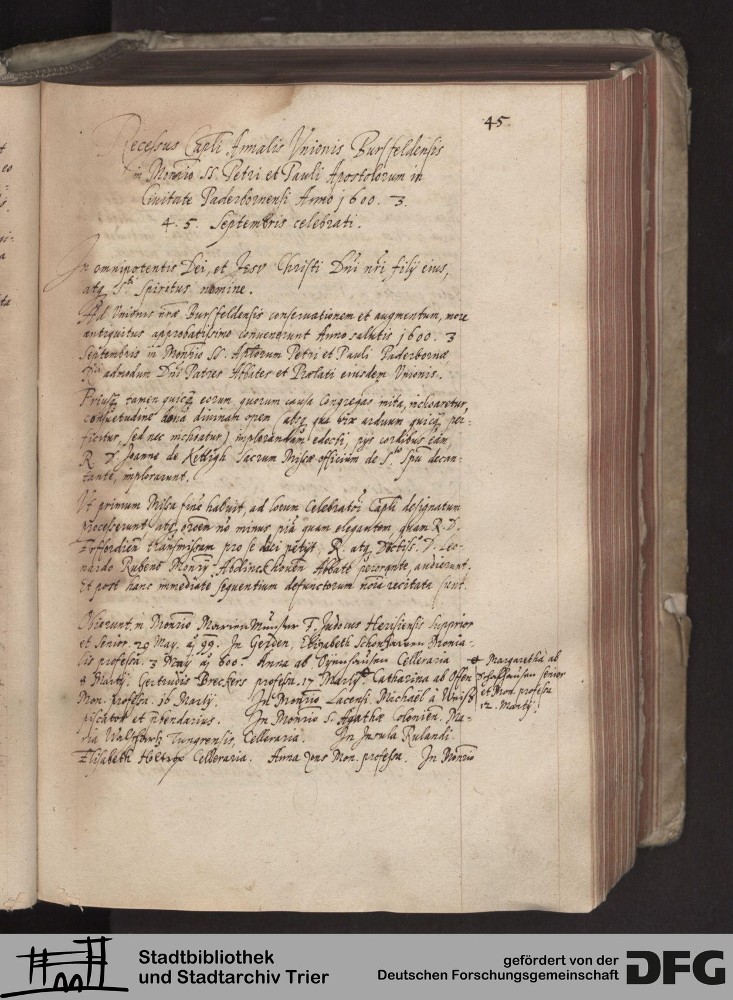 45.
Recessus Capli Annalis Unionis Bursfeldensis
in Monrio SS. Petri et Pauli Apostolorum in
Civitate Paderbornensi Anno 1600. 3.
4. 5. Septembris celebrati.
In omnipotentis Dei, et Jesu Christi Dni nri filij eius,
atq Sti Spiritus nomine.
Ad Unionis nrae Bursfeldensis conservationem et augmentum, more
antiquitus approbatissimo convenerunt Anno salutis 1600. 3
Septembris in Monrio SS. Aplorum Petri et Pauli Paderbornae
Rdi admodum Dni Patres Abbates et Praelati eiusdem Unionis.
Priusq tamen quicq eorum quorum causa congregaō inita, inchoaretur,
consuetudine bona divinam opem (absq qua vix arduum quicq per-
ficitur, sed nec inchoatur) implorandam edocti, pijs cordibus eam,
R. D. Joanne de sacrum Missae officium de Sto Spu decan-
tante, implorarunt.
Ut primum Missa finē habuit, ad locum Celebratōi Capli designatum
processerunt atq oroem nō minus piā quam elegantem, quam R. D.
Erffordien transmissam pro se dici petijt, R. atq Doctiss. D. Leo-
nardo Rubenō Monrij Abdinckhovēn Abbate perorante, audierunt.
Et post hanc immediatē sequentium defunctorum noīa recitata sunt.
Obierunt, in Monrio Marien Munster F. Judocus Herisiensis Supprior
et Senior. 29 May. aō 99. In Gerden, Elizabeth Monia-
lis professa. 3 May aō 600. Anna ab Celleraria
8 Martij. Gertrudis Breckers professa. 17 Martij. Catharina ab Offen
Mon. professa. 16 Martij. In Monrio Lacensi, Michaël à
piscator et In Monrio S. Agathae Colonien. Ma-
ria Tungrensis, Celleraria. In Insula Rulandi
Elisabeth Celleraria. Anna Mon. professa. In Monrio
Margaretha ab
senior
et Mon. professa
12. Martij.
Stadtbibliothek
und Stadtarchiv Trier
gefördert von der
Deutschen Forschungsgemeinschaft
DFG